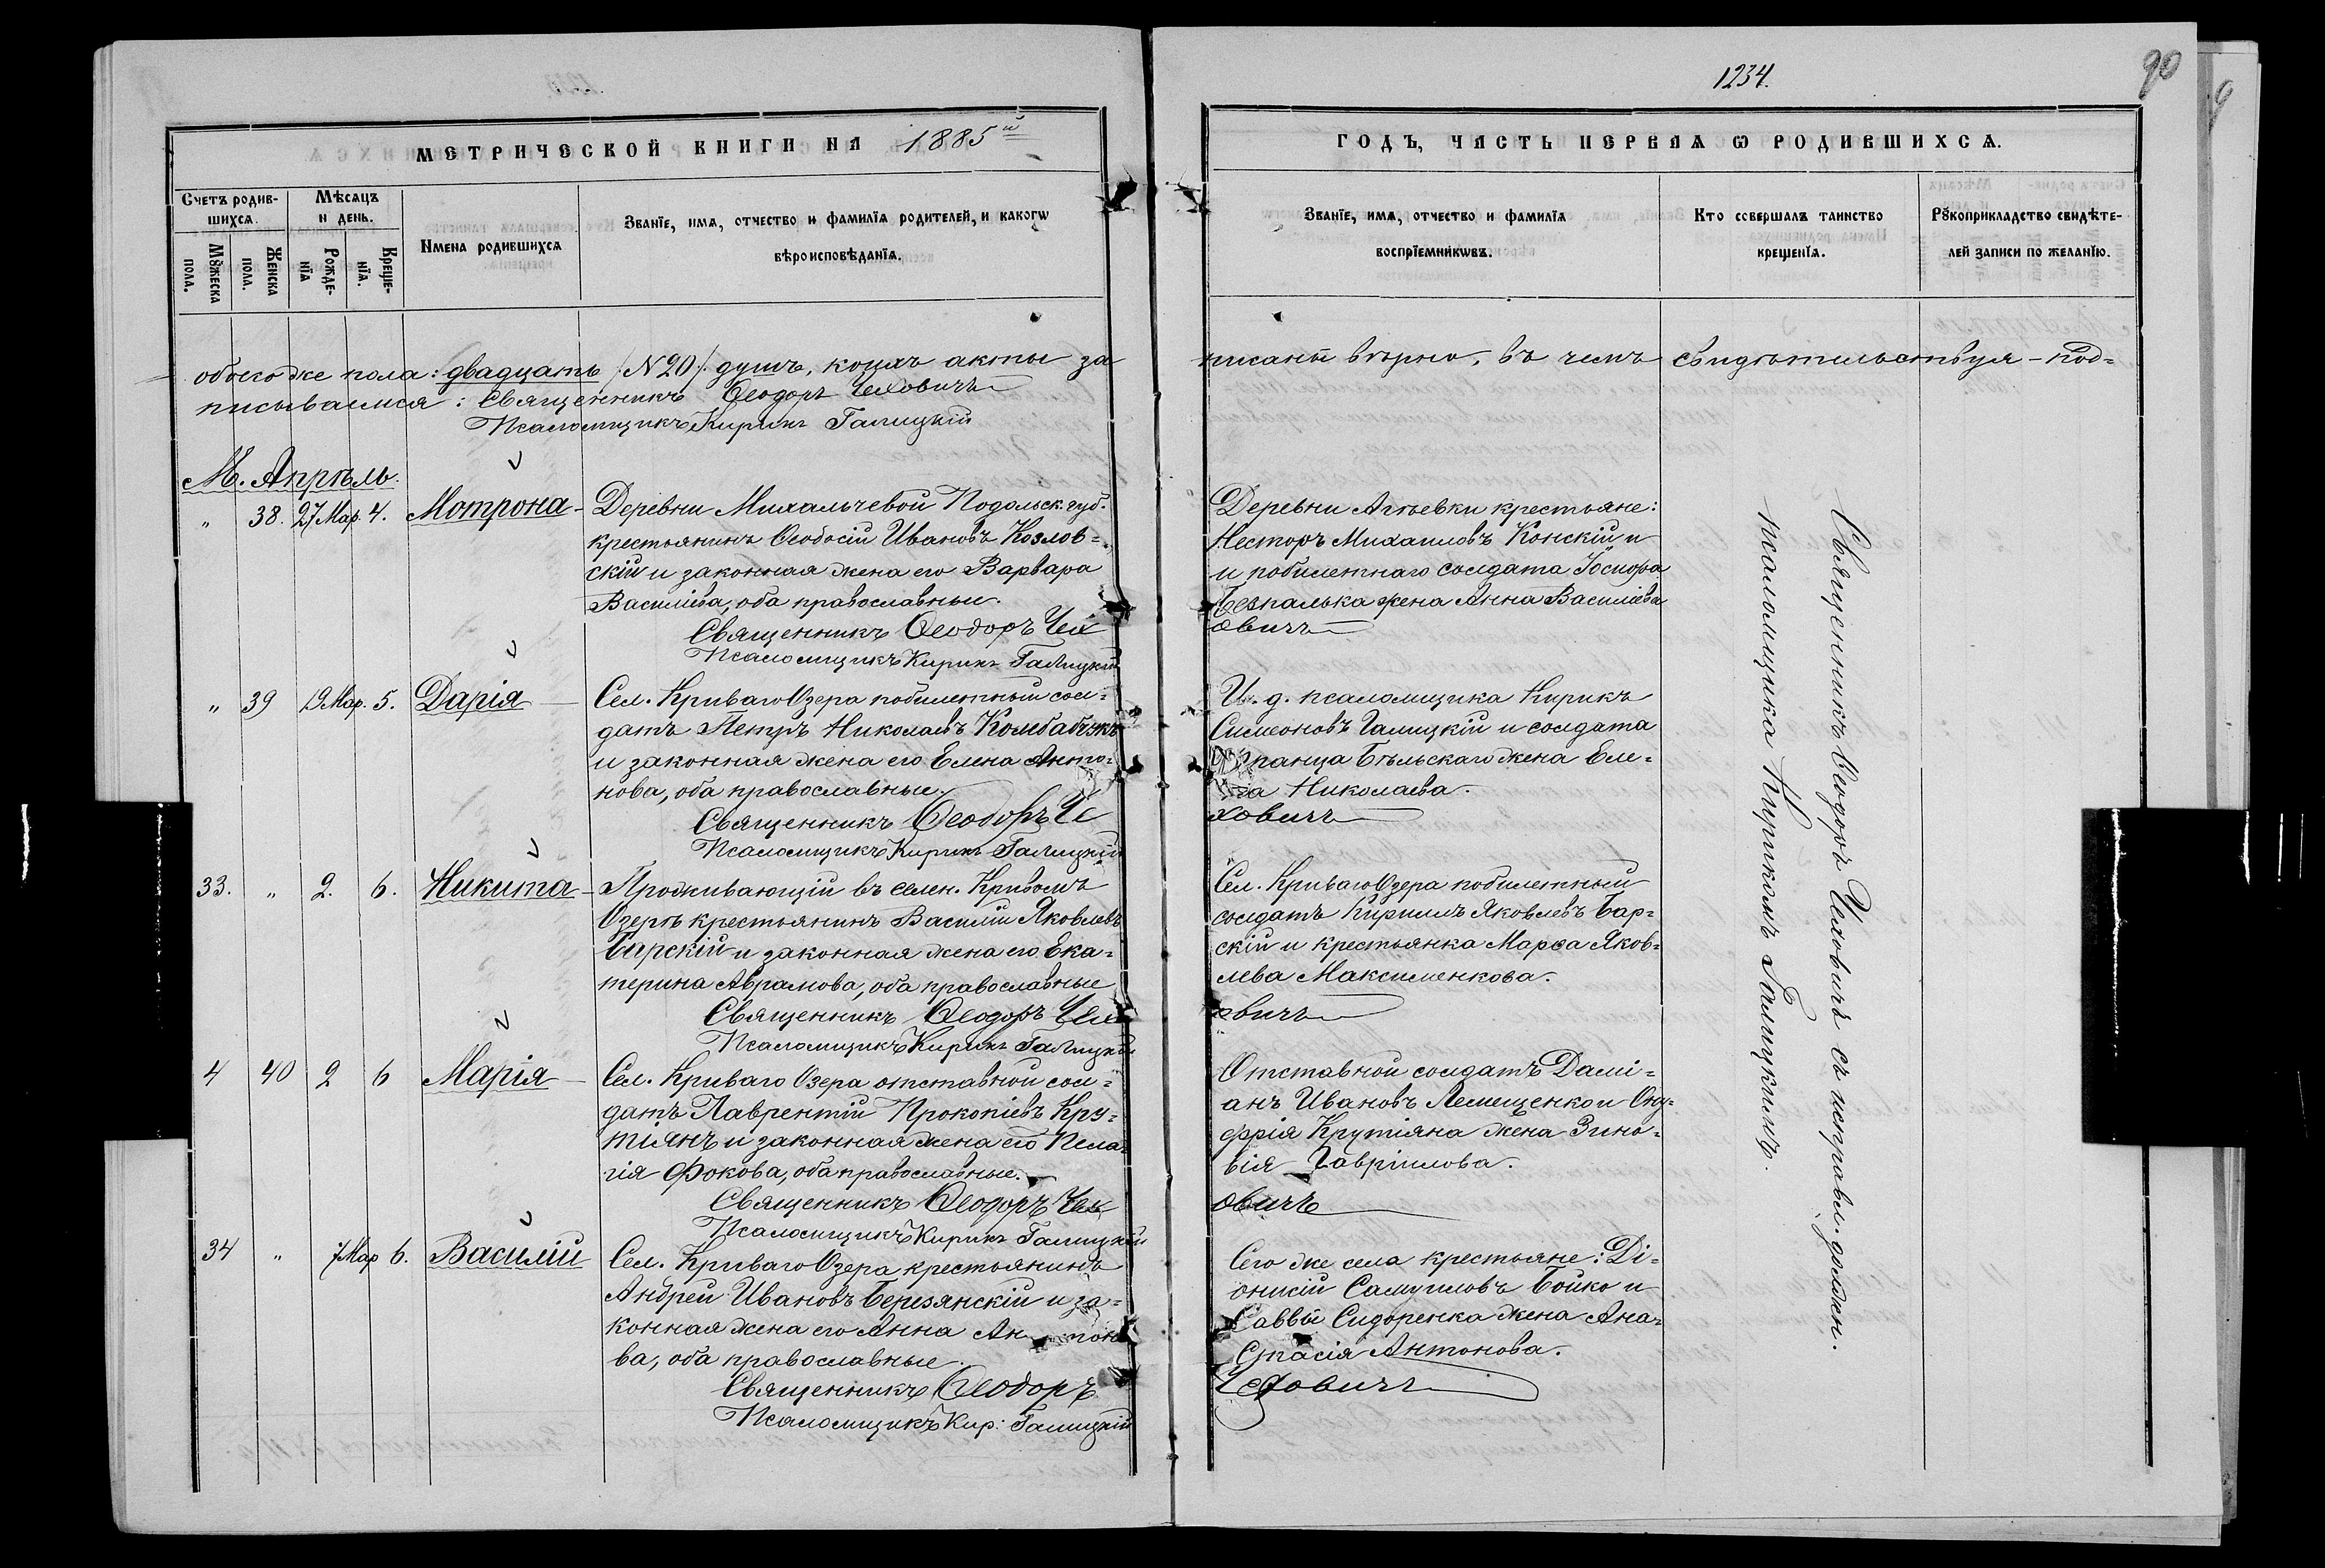 1234.
90
МЕТРИЧЕСКОЙ КНИГИ НА 1885й
ГОДЪ, ЧАСТЬ ПЕРВАѦ Ѡ РОДИВШИХСѦ.
Счетъ родив-
шихсѧ.
Мѣсѧцъ
и день.
Мꙋжеска
пола.
Женска
пола.
Рожде-
нїѧ
Креще-
нїѧ.
Имена родившихсѧ
Званїе, имѧ, отчество и фамилїѧ родителей, и какогѡ
вѣроисповѣданїѧ.
Званїе, имѧ, отчество и фамилїѧ
воспрїемникѡвъ.
Кто совершалъ таинство
крещенїѧ.
Рꙋкоприкладство свидѣте-
лей записи по желанїю.
обоего же пола: двадцать /N 20/. душъ, коихъ акты за
писаны вѣрно, въ чемъ свидѣтельствуя - под=
писываемся: Священникъ Ѳеодоръ Чеховичъ
Псаломщикъ Кирикъ Галицкій
М. Апрѣль.
" 38. 27 Мар. 4. Мотрона - Деревни Михальчевой Подольск. губ.
крестьянинъ Ѳеодосій Ивановъ Козлов=
скій и законная жена его Варвара
Василіева, оба православные.
Священникъ Ѳеодоръ Чех
Псаломщикъ Кирикъ Галицкій
Деревни Агѣевки крестьяне:
Несторъ Михаиловъ Конскій и
и побилетнаго солдата
Безпалька жена Анна Василіева
овичъ
" 39 19 Мар. 5. Дарія - Сел. Криваго Озера побилетный сол=
датъ Петръ Николаевъ
и законная жена его Елена Анто=
нова, оба православные.
Священникъ Ѳеодоръ Че
Псаломщикъ Кирикъ Галицкій
И. д. псаломщика Кирикъ
Симеоновъ Галицкій и солдата
Бѣльскаго жена Еле=
на Николаева.
ховичъ
33. " 2. 6. Никита - Проживающій въ селен. Кривомъ
Озерѣ крестьянинъ Василій Яковлевъ
Барскій и законная жена его Ека=
терина Аврамова, оба православные
Священникъ Ѳеодоръ Чех
Псаломщикъ Кирикъ Галицкій
Сел. Криваго Озера побилетный
солдатъ Кириллъ Яковлевъ Бар=
скій и крестьянка Марѳа Яков=
лева Максименкова.
овичъ
4 40 2 6 Марія - Сел. Криваго Озера отставной сол=
датъ Лаврентій Прокопіевъ Кру=
тіянъ и законная жена его Пела=
гія Фокова, оба православные.
Священникъ Ѳеодоръ Чех
Псаломщикъ Кирикъ Галицкій
Отставной солдатъ Дамі=
анъ Ивановъ Лемещенко и Ону=
фрія Крутіяна жена Зино=
вія Гавріилова.
овичъ
34 " 7 Мар 6. Василій Сел. Криваго Озера крестьянинъ
Андрей Ивановъ Березянскій и за=
конная жена его Анна
ва, оба православные.
Священникъ Ѳеодоръ
Псаломщикъ Кир: Галицкій
Сего же села крестьяне: Ді=
онисій Самуиловъ Бойко и
Саввы Сидоренка жена Ана=
стасія Антонова.
Чеховичъ
Священникъ Ѳеодоръ Чеховичъ съ исправл. должн.
псаломщика Кирикомъ Галицкимъ.